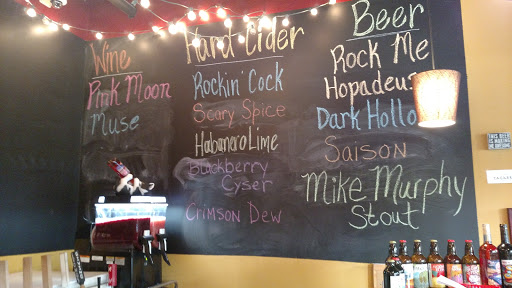 Wine
Pink Moon
Muse
Hard Cider
Rockin' Cock
Scary Spice
Habanero Lime
Blackberry
Cyser
Crimson Dew
Beer
Rock Me
Hopadeus
Dark Hollo
Saison
Mike Murphy
Stout
THIS BEER
IS MAKING
ME AWESOME